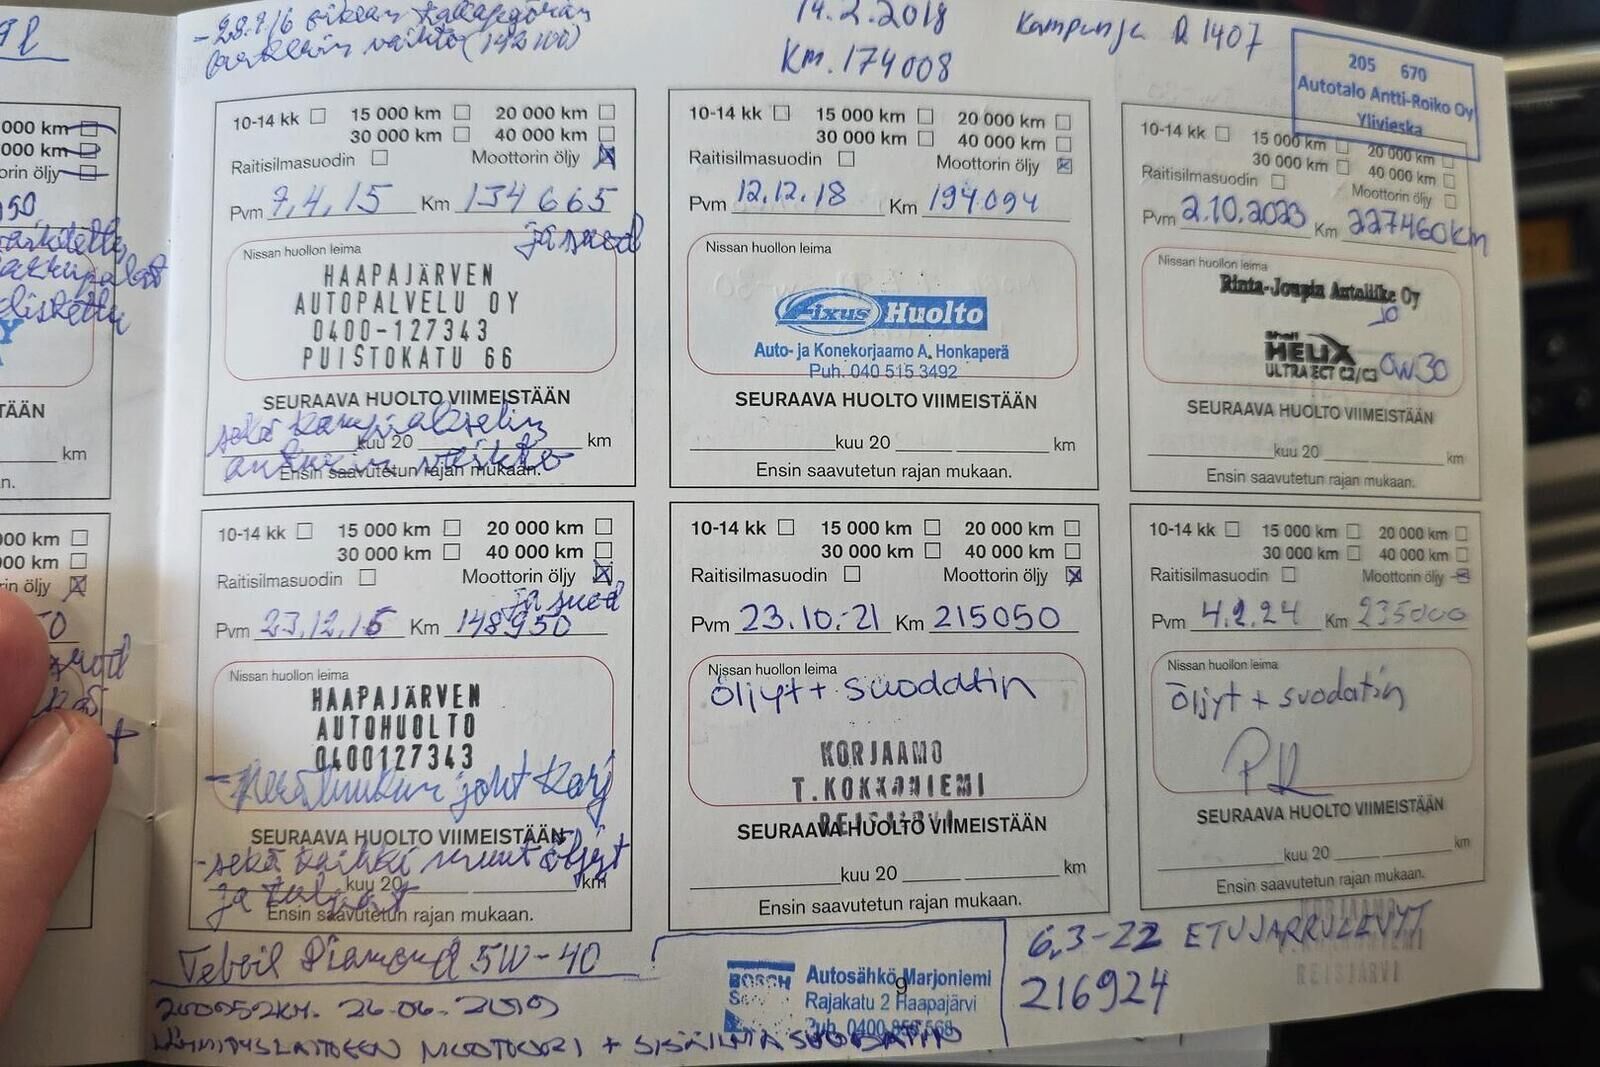 14.2.2018
Km. 174008
Kampunja R 1407
205 670
Autotalo Antti-Roiko Oy
Ylivieska
000 km
000 km
orin öljy
TÄÄN
km
n.
000 km
000 km
in öljy
10-14 kk 15 000 km 20 000 km
30 000 km 40 000 km
Raitisilmasuodin Moottorin öljy
Pvm 7,4,15 Km 134665
ja suod
Nissan huollon leima
HAAPAJÄRVEN
AUTOPALVELU OY
0400-127343
PUISTOKATU 66
SEURAAVA HUOLTO VIIMEISTÄÄN
sekä kampiakselin
kuu 20 km
Ensin saavutetun rajan mukaan.
10-14 kk 15 000 km 20 000 km
30 000 km 40 000 km
Raitisilmasuodin Moottorin öljy
Pvm 12.12.18 Km 194094
Nissan huollon leima
Fixus Huolto
Auto- ja Konekorjaamo A. Honkaperä
Puh. 040 515 3492
SEURAAVA HUOLTO VIIMEISTÄÄN
kuu 20 km
Ensin saavutetun rajan mukaan.
10-14 kk 15 000 km 20 000 km
30 000 km 40 000 km
Raitisilmasuodin Moottorin öljy
Pvm 2.10.2023 Km 227460km
Nissan huollon leima
Rinta-Joupin Autoliike Oy
Shell
HELIX
ULTRA ECT C2/C3 0W30
SEURAAVA HUOLTO VIIMEISTÄÄN
kuu 20 km
Ensin saavutetun rajan mukaan.
10-14 kk 15 000 km 20 000 km
30 000 km 40 000 km
Raitisilmasuodin Moottorin öljy
ja suod
Pvm 23.12.15 Km 148950
Nissan huollon leima
HAAPAJÄRVEN
AUTOHUOLTO
0400127343
SEURAAVA HUOLTO VIIMEISTÄÄN
- sekä kaikki muut öljyt
kuu 20 km
Ensin saavutetun rajan mukaan.
10-14 kk 15 000 km 20 000 km
30 000 km 40 000 km
Raitisilmasuodin Moottorin öljy
Pvm 23.10.-21 Km 215050
Nissan huollon leima
öljyt + suodatin
KORJAAMO
T.KOKKONIEMI
REISJÄRVI
SEURAAVA HUOLTO VIIMEISTÄÄN
kuu 20 km
Ensin saavutetun rajan mukaan.
10-14 kk 15 000 km 20 000 km
30 000 km 40 000 km
Raitisilmasuodin Moottorin öljy
Pvm 4.2.24 Km 235000
Nissan huollon leima
öljyt + suodatin
PR
SEURAAVA HUOLTO VIIMEISTÄÄN
kuu 20 km
Ensin saavutetun rajan mukaan.
Teboil Diamond 5W-40
200052KM. 26.06.2019
LÄMMITYSLAITTEEN MOOTTORI + SISÄILMASUODATIN
BOSCH
Autosähkö Marjoniemi
Rajakatu 2 Haapajärvi
Puh. 0400 856 568
9
6.3-22 ETUJARRULEVYT
216924
KORJAAMO
REISJÄRVI